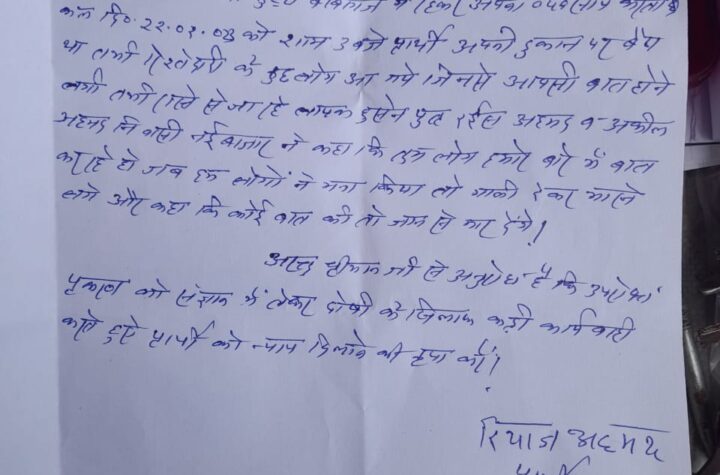 में रहकर अपना व्यवसाय करता है
कल दि० 22.01.03 को शाम 3 बजे प्रार्थी अपनी दुकान पर बैठा
था तभी रिश्तेदारी के कुछ लोग आ गये जिनसे आपसी बात होने
लगी तभी रास्ते से जा रहे लायक हुसेन पुत्र रईस अहमद व अकील
अहमद निवासी नई बाजार ने कहा कि तुम लोग हमारे बारे में बात
कर रहे हो जब हम लोगों ने मना किया तो गाली देकर मारने
लगे और कहा कि कोई बात की तो जान से मार देंगे।
अतः श्रीमान जी से अनुरोध है कि उपरोक्त
प्रकरण को संज्ञान में लेकर दोषी के खिलाफ कड़ी कार्यवाही
करते हुए प्रार्थी को न्याय दिलाने की कृपा करें।
रियाज अहमद